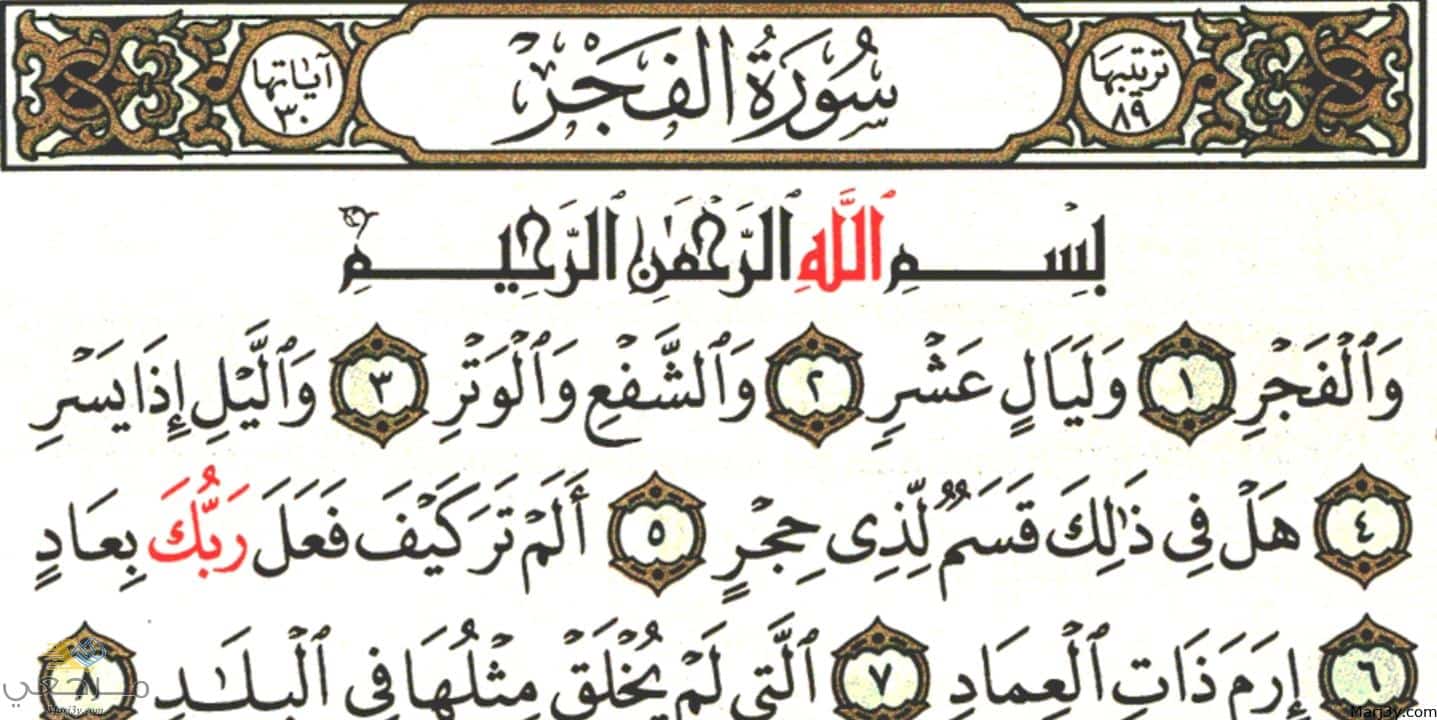 ترتيبها ٨٩ سُورَةُ الفَجْرِ آياتها ٣٠
بِسْمِ ٱللَّهِ ٱلرَّحْمَٰنِ ٱلرَّحِيمِ
وَٱلْفَجْرِ ١ وَلَيَالٍ عَشْرٍ ٢ وَٱلشَّفْعِ وَٱلْوَتْرِ ٣ وَٱلَّيْلِ إِذَا يَسْرِ
٤ هَلْ فِى ذَٰلِكَ قَسَمٌ لِّذِى حِجْرٍ ٥ أَلَمْ تَرَ كَيْفَ فَعَلَ رَبُّكَ بِعَادٍ
٦ إِرَمَ ذَاتِ ٱلْعِمَادِ ٧ ٱلَّتِى لَمْ يُخْلَقْ مِثْلُهَا فِى ٱلْبِلَـٰدِ ٨
مرجعي
Marj3y.com
Marj3y.com